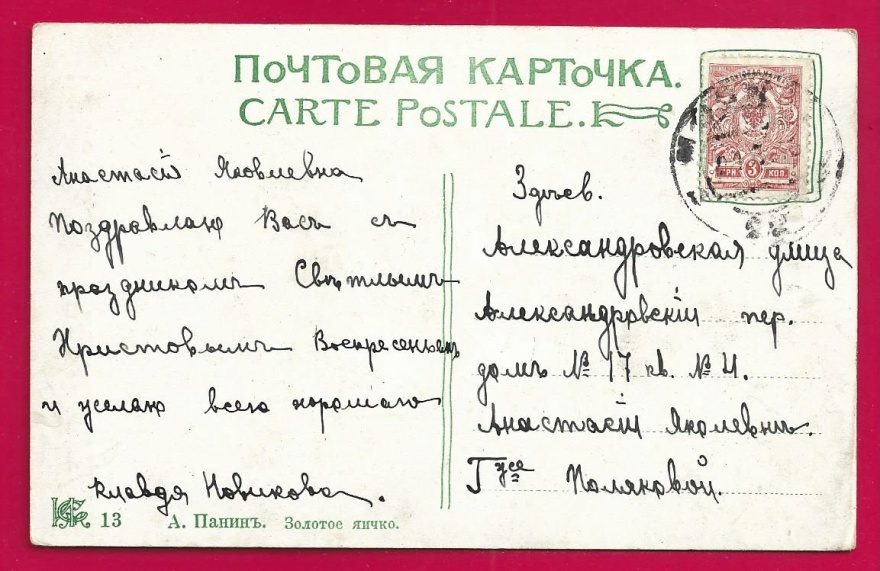 ПОЧТОВАЯ КАРТОЧКА.
CARTE POSTALE.
Анастасій Яковлевна
Поздравляю Васъ съ
праздникомъ Свѣтлымъ
Христовымъ Воскресеньемъ
и желаю всего хорошаго
Клавдя Новикова.
3 КОП.
Здѣсь.
Александровская улица
Александровскій пер.
домъ № 17 кв. № 4.
Анастасій Яколевнъ.
Поляковой.
13 А. Панинъ. Золотое яичко.